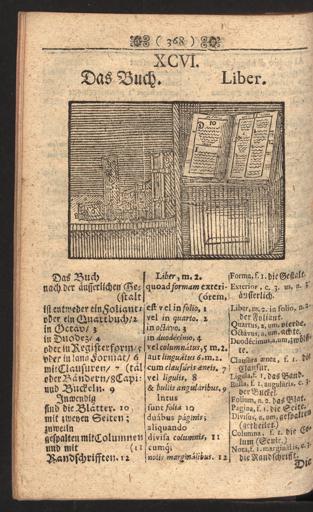 ( 368 )
XCVI.
Das Buch. Liber.
Das Buch
nach der äusserlichen Ge-
(stalt
ist entweder ein Foliant 1
oder ein Quartbuch/ 2
in Octav/ 3
in Duodez/ 4
oder in Registerform/ 5
oder in lang Format/ 6
mit Clausuren/ 7
oder Bändern/ 8
und Buckeln. 9
Inwendig
sind die Blätter. 10
mit zweyen Seiten;
zuweiln
gespalten mit Columnen
und mit (11
Randschrifften. 12
Liber, m. 2.
quoad formam exteri-
(órem,
est vel in folio, 1
vel in quarto, 2
in octavo, 3
in duodécimo, 4
vel columnátus, 5 m. 2.
aut linguátus 6. m. 2.
cum clausúris æneis, 7
vel ligulis, 8
& bullis anguláribus. 9
Intus
sunt folia 10
duábus páginis;
aliquando
divisa columnis, 11
cumq;
notis marginálibus. 12
Forma, f. 1. die Gestalt.
Exterior, c. 3. m. n. 3.
äusserlich.
Liber, m. 2. in folio, n. 2.
der Foliant.
Quartus, a, um, vierde.
Octávus, a, um, achte.
Duodécimus, a, um,
Clausúra ænea, f. 1. die
Clausur.
Ligula, f. 1. das Band.
Bulla, f. 1. anguláris, c. 3.
der Buckel.
Folium, n. 2. das Blat.
Pagina, f. 1. die Seite.
Divisus, a, um, gespalten
(getheilet.)
Columna, f. 1. die Co-
lum (Seule.)
Nota, f. 1. marginális, c. 3.
die Randschrifft.
Die